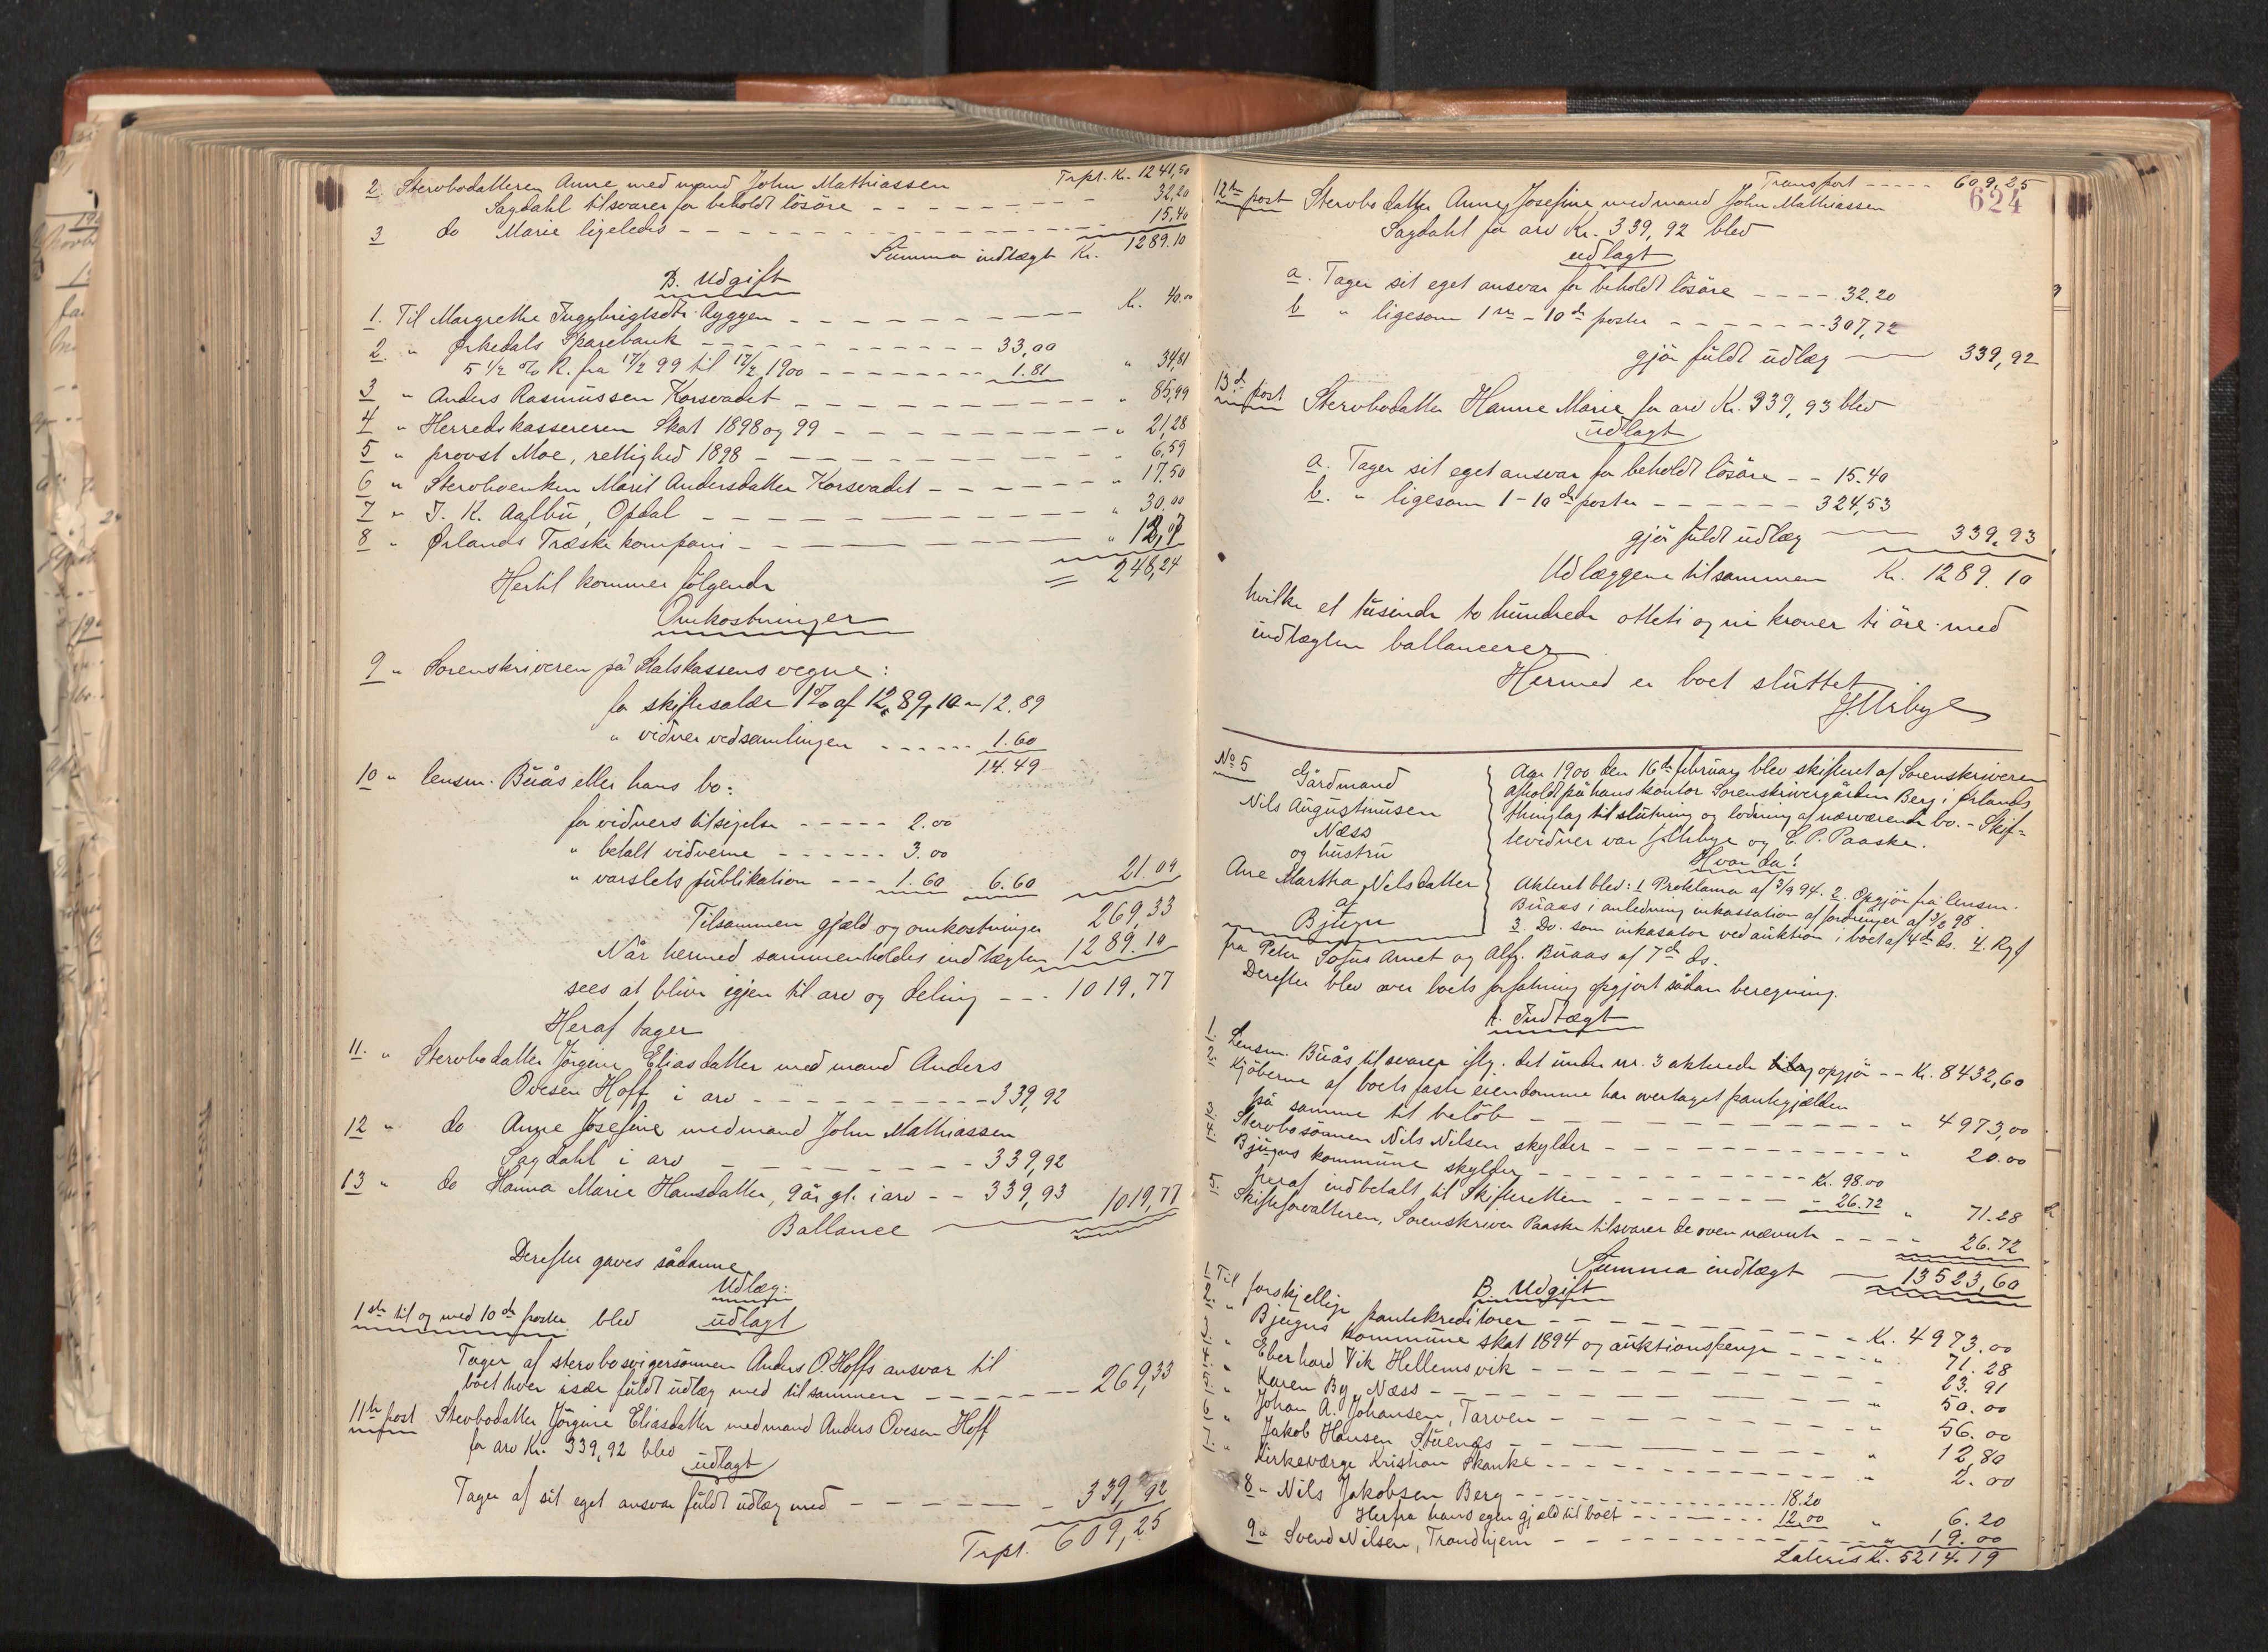 Trpt. Kr. 1241,50
2. Stervbodatteren Anne med mand John Mathiassen
Sagdahl tilsvarer for beholdt løsöre - - - 32,20
3 do Marie ligeledes - - - 15,40
Summa indtægt Kr. 1289.10
B. Udgift
1. Til Margrethe Ingebrigtsdtr. Ryggen - - - Kr. 40.00
2. " Ørkedals Sparebank - - - 33,00
5 1/2 % R. fra 17/2 99 til 17/2 1900 - - - 1.81 " 34,81
3 " Anders Rasmussen Korsvadet - - - " 85,99
4 " Herredskassereren Skat 1898 og 99 - - - " 21,28
5 " provst Moe, rettighed 1898 - - - " 6,59
6 " Stervboenken Marit Andersdatter Korsvadet - - - " 17,50
7 " J. K. Aalbu, Opdal - - - " 30.00
8 " Ørlands Træskekompani - - - " 12,07
= 248,24
Hertil kommer følgende
Omkostninger
9 " Sorenskriveren på Statskassens vegne:
for skiftesalær 1% af 1289,10 - 12.89
" vidner ved samlingen - - - 1.60
14.49
10 " lensm. Buås eller hans bo:
for vidners tilsigelse - - - 2.00
" betalt vidnerne - - - 3.00
" varslets publikation - - - 1.60 6.60 21.09
Tilsammen gjæld og omkostninger 269,33
Når hermed sammenholdes indtægten 1289.10
sees at blive igjen til arv og deling - - - 1019,77
Heraf tager
11. " Stervbodatter Jörgine Eliasdatter med mand Anders
Ovesen Hoff i arv - - - 339,92
12 " do Anne Josefine med mand John Mathiassen
Sagdahl i arv - - - 339,92
13 " do Hanna Marie Hansdatter, 9 år gl. i arv - - 339,93 1019,77
Ballance
Derefter gaves sådanne
Udlæg:
1ste til og med 10de poster blev udlagt
Tager af stervbosvigersønnen Anders O. Hoffs ansvar til
boet hver især fuldt udlæg med tilsammen - - - 269,33
11te post Stervbodatter Jörgine Eliasdatter med mand Anders Ovesen Hoff
for arv Kr. 339,92 blev udlagt
Tager af sit eget ansvar fuldt udlæg med - - - 339,92
Trpt. 609,25
Transport - - - 609,25
624
12te post Stervbodatter Anne Josefine med mand John Mathiassen
Sagdahl for arv Kr. 339,92 blev
udlagt
a. Tager sit eget ansvar for beholdt lösöre - - - 32.20
b " ligesom 1ste - 10de poster - - - 307,72
gjör fuldt udlæg 339,92
13de post Stervbodatter Hanne Marie for arv Kr. 339,93 blev
udlagt
a. Tager sit eget ansvar for beholdt lösöre - - 15.40
b. " ligesom 1 - 10de poster - - - 324,53
gjör fuldt udlæg 339.93
Udlæggene tilsammen Kr. 1289.10
hvilke et tusinde to hundrede otteti og ni kroner ti öre med
indtægten ballancerer.
Hermed er boet sluttet
No 5
Gårdmand
Nils Augustinusen
Næss
og hustru
Ane Martha Nilsdatter
af
Bjugn
Aar 1900 den 16de februar blev skifteret af Sorenskriveren
afholdt på hans kontor Sorenskrivergården Berg i Ørlands
thinglag til slutning og lodning af nærværende bo. - Skif=
tevidner var og C. P. Paaske.
Hvor da!
Akteret blev: 1 Proklama af 3/9 94. 2. Opgjör fra lensm.
Buaas i anledning inkassation af fordringer af 3/2 98.
3. Do. som inkasator ved auktion i boet af 4de ds. 4. Rgf
fra Peter Sofus Arnet og Alf. Buaas af 7de ds.
Derefter blev over boets forfatning opgjort sådan beregning.
A. Indtægt
1. Lensm. Buås tilsvarer iflg. det under nr. 3 akterede opgjör - - Kr. 8432,60
2. Kjöberne af boets faste eiendomme har overtaget pantegjælden
på samme til beløb - - - " 4973,00
3. Stervbosönnen Nils Nilsen skylder - - - " 20.00
4. Bjugns kommune skylder - - - Kr. 98.00
heraf indbetalt til Skifteretten - - - " 26.72 " 71.28
5. Skifteforvalteren, Sorenskriver Paaske tilsvarer de ovennævnte - - - 26.72
Summa indtægt 13523,60
B. Udgift
1. Til forskjellige pantekreditorer - - - Kr. 4973.00
2. " Bjugns kommune skat 1894 og auktionspenge - - - " 71.28
3. " Eberhard Vik Hellemsvik - - - 23.91
4. " Karen By Næss - - - " 50.00
5. " Johan A. Johansen, Tarven - - - " 56.00
6. " Jakob Hansen Stuenes - - - " 12,80
7. " Kirkeværge Kristian Skanke - - - " 2.00
8 " Nils Jakobsen Berg - - - 18.20
Herfra hans egen gjæld til boet - - - 12.00 " 6.20
9 " Svend Nilsen, Trondhjem - - - " 19.00
Lateris Kr. 5214.19